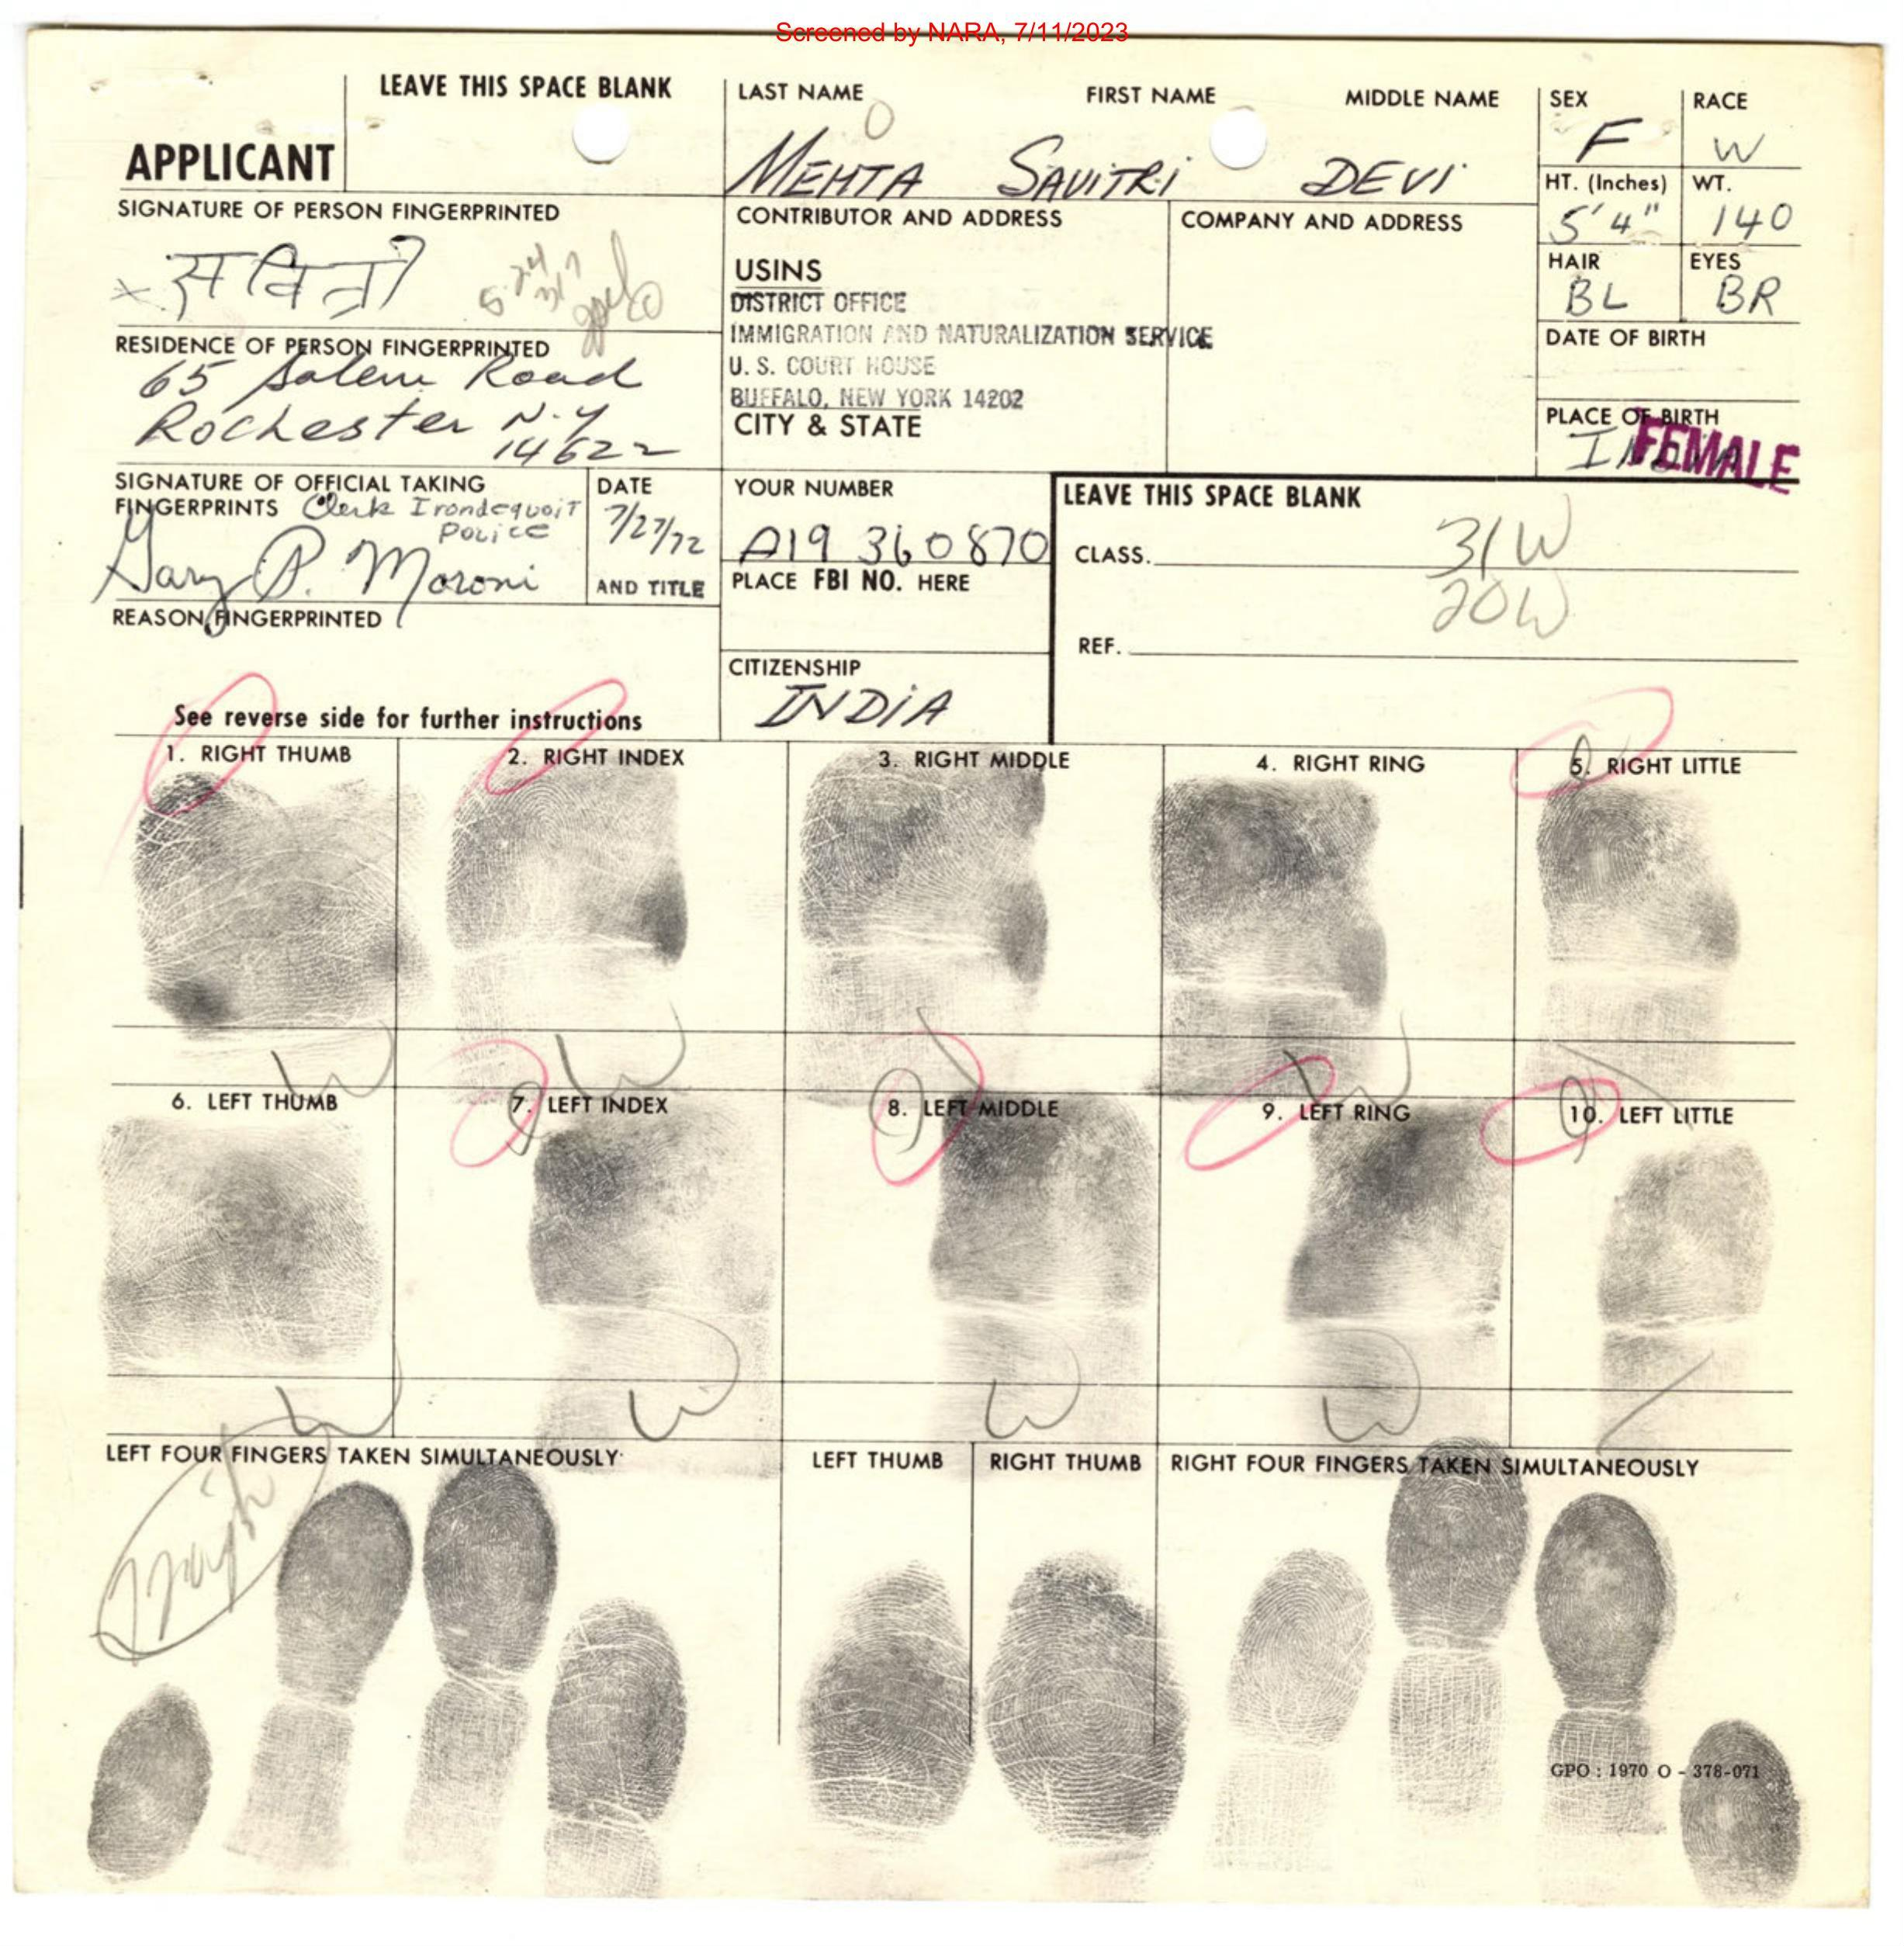 Screened by NARA, 7/11/2023
LEAVE THIS SPACE BLANK
LAST NAME FIRST NAME MIDDLE NAME
SEX RACE
APPLICANT
MEHTA SAVITRI DEVI
F W
HT. (Inches) WT.
5'4" 140
SIGNATURE OF PERSON FINGERPRINTED
x सवित्री
CONTRIBUTOR AND ADDRESS
COMPANY AND ADDRESS
USINS
DISTRICT OFFICE
IMMIGRATION AND NATURALIZATION SERVICE
U. S. COURT HOUSE
BUFFALO, NEW YORK 14202
CITY & STATE
HAIR EYES
BL BR
DATE OF BIRTH
PLACE OF BIRTH
INDIA
FEMALE
RESIDENCE OF PERSON FINGERPRINTED
65 Salem Road
Rochester N.Y
14622
SIGNATURE OF OFFICIAL TAKING
FINGERPRINTS Clerk Irondequoit
Police
Gary P. Moroni
DATE
7/27/72
AND TITLE
YOUR NUMBER
A19 360870
PLACE FBI NO. HERE
LEAVE THIS SPACE BLANK
CLASS. 31W
20W
REF.
REASON FINGERPRINTED
CITIZENSHIP
INDIA
See reverse side for further instructions
1. RIGHT THUMB 2. RIGHT INDEX 3. RIGHT MIDDLE 4. RIGHT RING 5. RIGHT LITTLE
W W \ W \
6. LEFT THUMB 7. LEFT INDEX 8. LEFT MIDDLE 9. LEFT RING 10. LEFT LITTLE
W W W W /
LEFT FOUR FINGERS TAKEN SIMULTANEOUSLY LEFT THUMB RIGHT THUMB RIGHT FOUR FINGERS TAKEN SIMULTANEOUSLY
GPO : 1970 O - 378-071